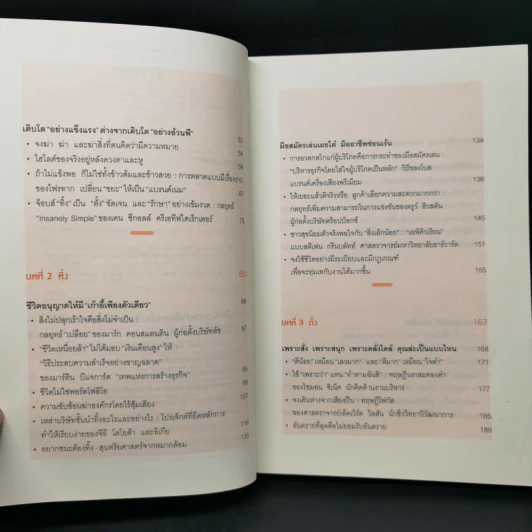 เติบโต "อย่างแข็งแรง" ต่างจากเติบโต "อย่างอ้วนพี"
• จงฆ่า ฆ่า และฆ่าสิ่งที่ตนคิดว่ามีความหมาย 54
• ไฮไลต์ของจริงอยู่หลังดวงตาและหู 59
• ถ้าไม่แข็งพอ ก็ไม่ใช่ทั้งข้าวต้มและข้าวสวย : การตลาดแบบมีเรื่องราว
ของไพ่ทราก เปลี่ยน "ขยะ" ให้เป็น "แบรนด์เนม"
• จ็อบส์ "ทิ้ง" เป็น "ตั้ง" ชัดเจน และ "รักษา" อย่างเข้มงวด : กลยุทธ์
"Insanely Simple" ของเคน ซีกอลล์ ครีเอทีฟไดเร็กเตอร์ 75
บทที่ 2 ทิ้ง 85
ชีวิตอนุญาตให้มี "เก้าอี้เพียงตัวเดียว" 88
• สิ่งไม่ปลุกเร้าใจคือสิ่งไม่จำเป็น :
กลยุทธ์ "เปลือย" ของมาร์ก คอนสแตนติน ผู้ก่อตั้งบริษัทลัช
• "ชีวิตเหนื่อยล้า" ไม่ได้มอบ "เงินเดือนสูง" ให้ : 97
"วิธีประสบความสำเร็จอย่างชาญฉลาด"
ของมาร์ติน บีแจการ์ด "เทพแห่งการสร้างธุรกิจ"
• ชีวิตไม่ใช่พอร์ตโฟลิโอ 98
• ความซับซ้อนฆ่าองค์กรโดยไร้สุ้มเสียง 107
• เหล่าบริษัทชั้นนำทิ้งอะไรและอย่างไร : โปรเจ็กต์ที่ยึดหลักการ
ทำให้เรียบง่ายของจีอี โตโยต้า และอิเกีย 119
• อยากชนะต้องทิ้ง : สุนทรียศาสตร์จากหมากล้อม 125
มือสมัครเล่นเผยไต๋ มืออาชีพซ่อนเร้น 134
• การอวดกลไกแก่ผู้บริโภคคือการกระทำของมือสมัครเล่น :
"บริหารธุรกิจโดยใส่ใจผู้บริโภคเป็นหลัก" วิถีของโบส
แบรนด์เครื่องเสียงพรีเมียม 136
• ให้เยอะแล้วดีจริงหรือ ลูกค้าเลือกความสะดวกมากกว่า :
กลยุทธ์เพิ่มความสามารถในการแข่งขันของดรูว์ ฮิวสตัน
ผู้ก่อตั้งบริษัทดรอปบ็อกซ์ 145
• ชาวสุขนิยมตัวจริงพอใจกับ "สิ่งเล็กน้อย" : "เอพิคิวเรียน"
แบบสตีเฟน กรีนบลัทท์ ศาสตราจารย์มหาวิทยาลัยฮาร์วาร์ด 151
• จงใช้ชีวิตอย่างมีระเบียบและมีกฎเกณฑ์
เพื่อจะทุ่มเทกับงานได้มากขึ้น 155
บทที่ 3 ตั้ง 167
เพราะสั่ง เพราะสนุก เพราะคลั่งไคล้ คุณล่ะเป็นแบบไหน
• "ดีน้อย" เหมือน "เลวมาก" และ "ดีมาก" เหมือน "ใจดำ" 168
• ใช้ "เพราะว่า" แทน "ทำตามฉันสิ" : ทฤษฎีวงกลมทองคำ 171
ของไซมอน ซิเน็ค นักคิดด้านงานบริหาร
• จงเดินห่างจากเสียงปืน : ทฤษฎีโฟกัส 177
ของศาสตราจารย์เอ็ดเวิร์ด วิลสัน นักชีววิทยาวิวัฒนาการ
• อันตรายที่สุดคือไม่ยอมรับอันตราย 185
189